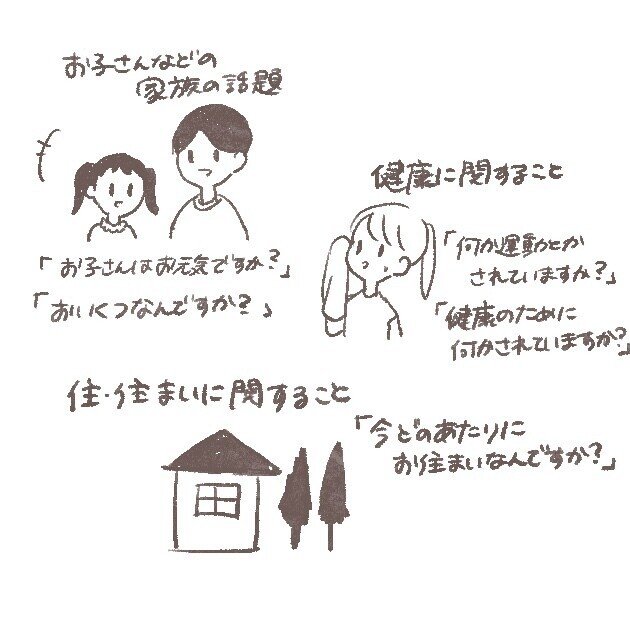 お子さんなどの
家族の話題
「お子さんはお元気ですか？」
「おいくつなんですか？」
健康に関すること
「何か運動とか
されていますか？」
「健康のために
何かされていますか？」
住・住まいに関すること
「今どのあたりに
お住まいなんですか？」